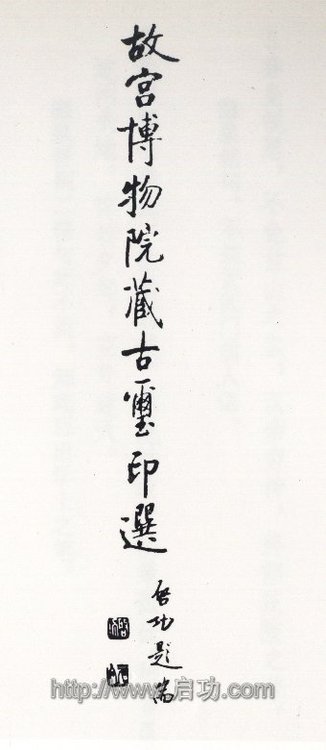 故宫博物院藏古璽印選
启功题耑
http://www.启功.com